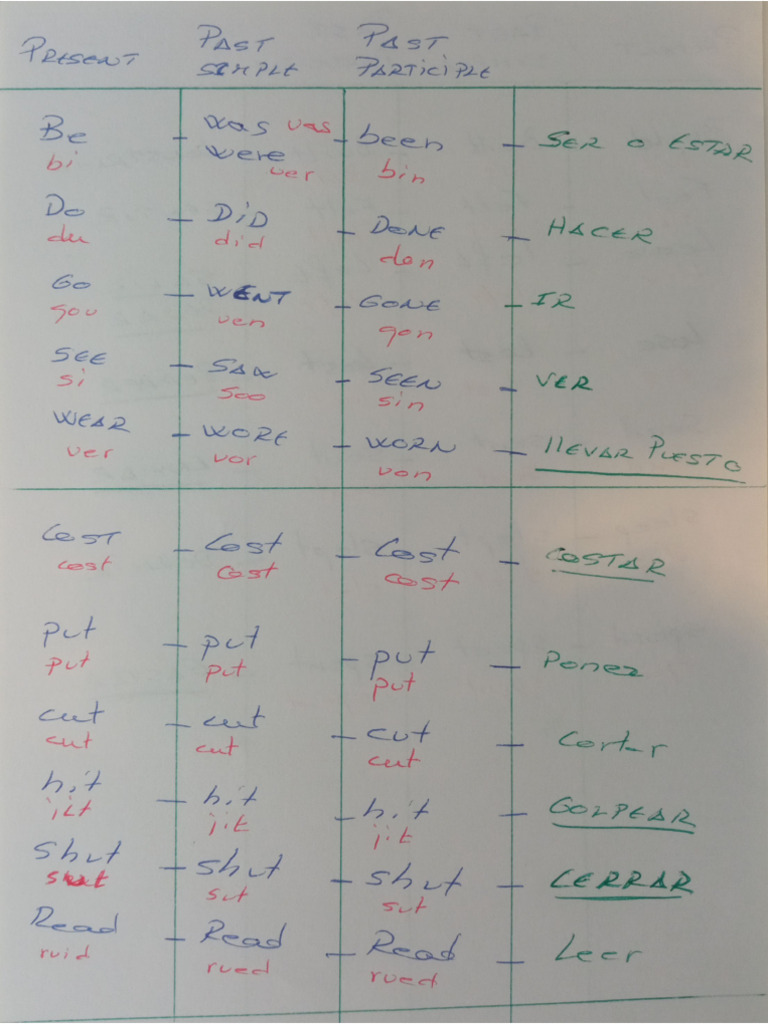 PRESENT PAST SIMPLE PAST PARTICIPLE
Be - was vas - been - SER O ESTAR
bi were ver bin
Do - DID - DONE - HACER
du did don
GO - WENT - GONE - IR
gou ven gon
SEE - SAW - SEEN - VER
si soo sin
WEAR - WORE - WORN - llEVAR PUESTO
ver vor von
COST - Cost - Cost - COSTAR
cost cost cost
put - put - put - Poner
put put put
cut - cut - cut - Cortar
cut cut cut
hit - hit - hit - GOLPEAR
jit jit jit
Shut - shut - shut - CERRAR
sut sut sut
Read - Read - Read - Leer
ruid rued rued